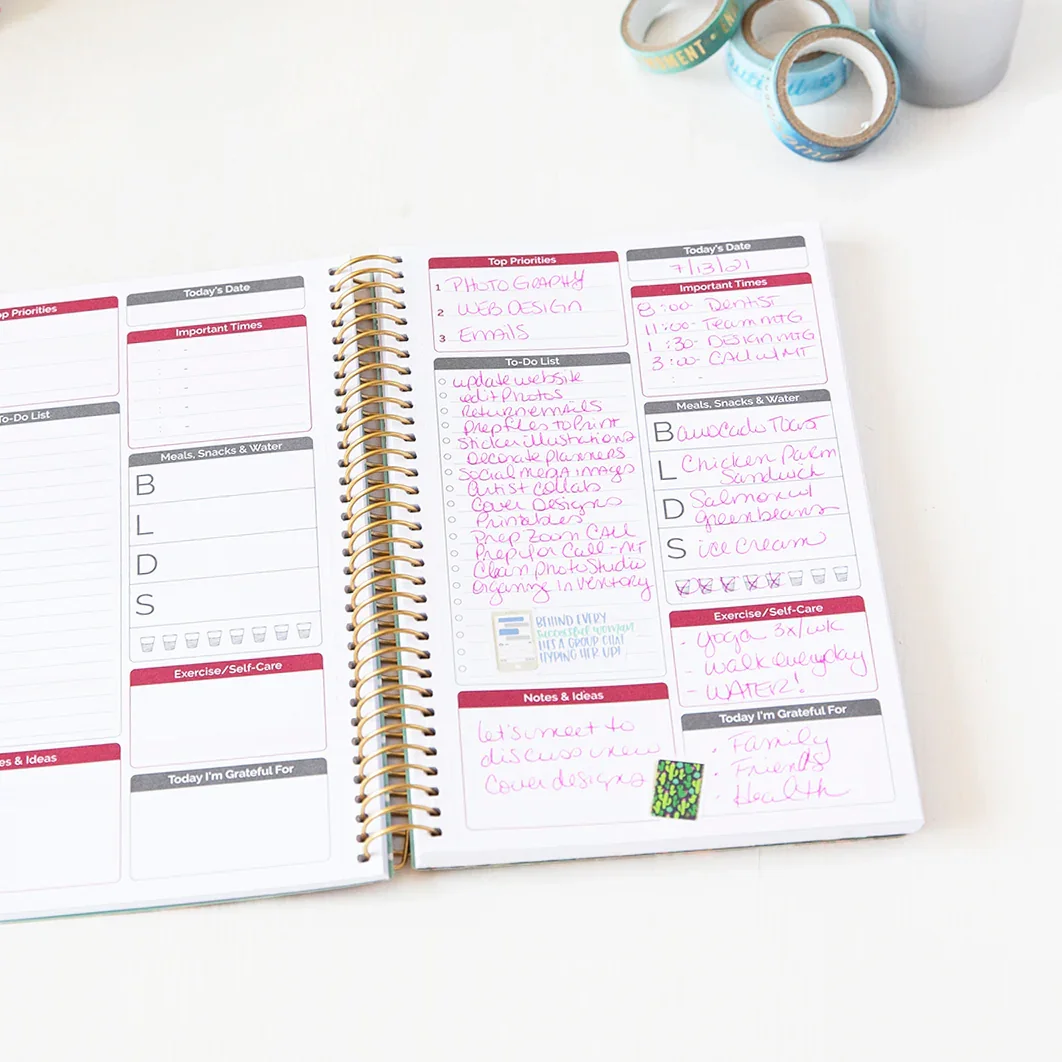 MOMENT •
Top Priorities
To-Do List
Notes & Ideas
Today's Date
Important Times
Meals, Snacks & Water
B
L
D
S
Exercise/Self-Care
Today I'm Grateful For
Top Priorities
1 PHOTOGRAPHY
2 WEB DESIGN
3 EMAILS
To-Do List
update website
edit Photos
Return emails
Prep files to Print
Sticker illustrations
Decorate planners
Social media images
Artist Collab
Cover Designs
Printables
Prep Zoom CALL
Prep for Call-MT
Clean Photo Studio
Organize Inventory
BEHIND EVERY
successful woman
IS A GROUP CHAT
HYPING HER UP!
Notes & Ideas
let's meet to
discuss new
cover designs
Today's Date
7/13/21
Important Times
8:00- Dentist
11:00- Team MTG
1:30- DESIGN MTG
3:00- CALL w/ MT
Meals, Snacks & Water
B avocado Toast
L Chicken Parm
Sandwich
D Salmon w/
greenbeans
S ice cream
Exercise/Self-Care
- Yoga 3x/wk
- walk everyday
- WATER!
Today I'm Grateful For
• Family
• Friends
• Health